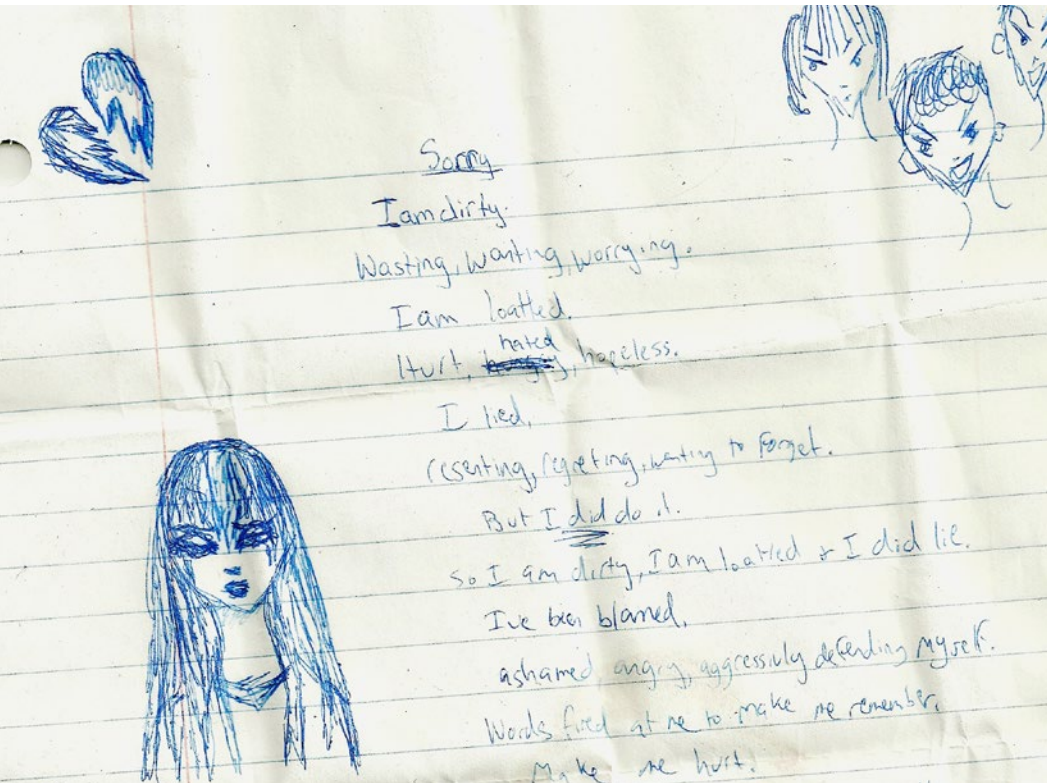 Sorry
I am dirty.
Wasting, wanting, worrying.
I am loatled.
Hurt, hated, hopeless.
I lied,
resenting, regreting, wanting to forget.
But I did do it.
so I am dirty, I am loatled & I did lie.
I've been blamed,
ashamed, angry, aggressivly defending myself.
Words fired at me to make me remember,
Make me hurt.